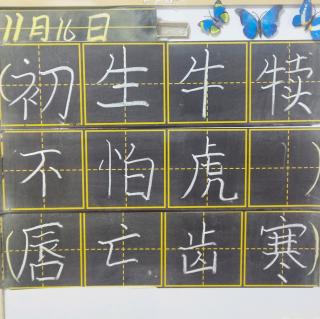 11月16日
(初生牛犊
不怕虎)
(唇亡齿寒)